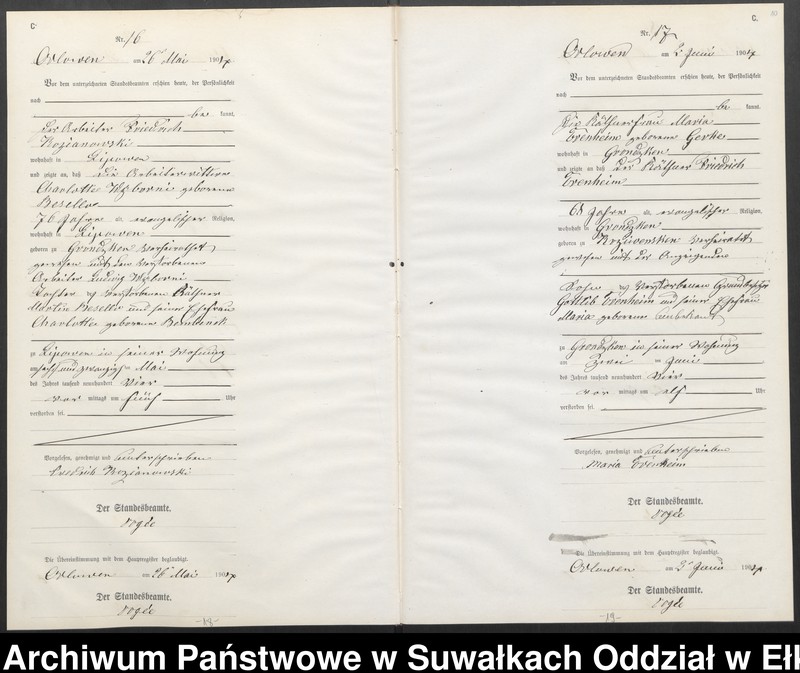 C.
Nr. 16
Orlowen am 26 Mai 1904
Vor dem unterzeichneten Standesbeamten erschien heute, der Persönlichkeit
nach
be kannt,
der Arbeiter Friedrich
Kozianowski
wohnhaft in Lipowen
und zeigte an, daß die Arbeiterwittwe
Charlotte geborene
76 Jahre alt, evangelischer Religion,
wohnhaft in Lipowen
geboren zu Grondzken verheirathet
gewesen mit dem verstorbenen
Arbeiter Ludwig
Tochter des verstorbenen Käthner
Martin und seiner Ehefrau
Charlotte geborene
zu Lipowen in seiner Wohnung
am sechs und zwanzigsten Mai
des Jahres tausend neunhundert vier
vor mittags um fünf Uhr
verstorben sei.
Vorgelesen, genehmigt und unterschrieben
Friedrich Kozianowski
Der Standesbeamte.
Die Übereinstimmung mit dem Hauptregister beglaubigt.
Orlowen am 26 Mai 1904
Der Standesbeamte.
-18-
C.
Nr. 17
Orlowen am 2 Juni 1904
Vor dem unterzeichneten Standesbeamten erschien heute, der Persönlichkeit
nach
be kannt,
die Käthnerfrau Maria
Trenheim geborene Gerke
wohnhaft in Grondzken
und zeigte an, daß der Käthner Friedrich
Trenheim
Jahre alt, evangelischer Religion,
wohnhaft in Grondzken
geboren zu verheirathet
gewesen mit der Anzeigenden
Sohn des verstorbenen Grundbesitzer
Gottlieb Trenheim und seiner Ehefrau
Maria geborene unbekannt
zu Grondzken in seiner Wohnung
am zwei ten Juni
des Jahres tausend neunhundert vier
vor mittags um elf Uhr
verstorben sei.
Vorgelesen, genehmigt und unterschrieben
Maria Trenheim
Der Standesbeamte.
Die Übereinstimmung mit dem Hauptregister beglaubigt.
Orlowen am 2 Juni 1904
Der Standesbeamte.
-19-
Archiwum Państwowe w Suwałkach Oddział w Ełk